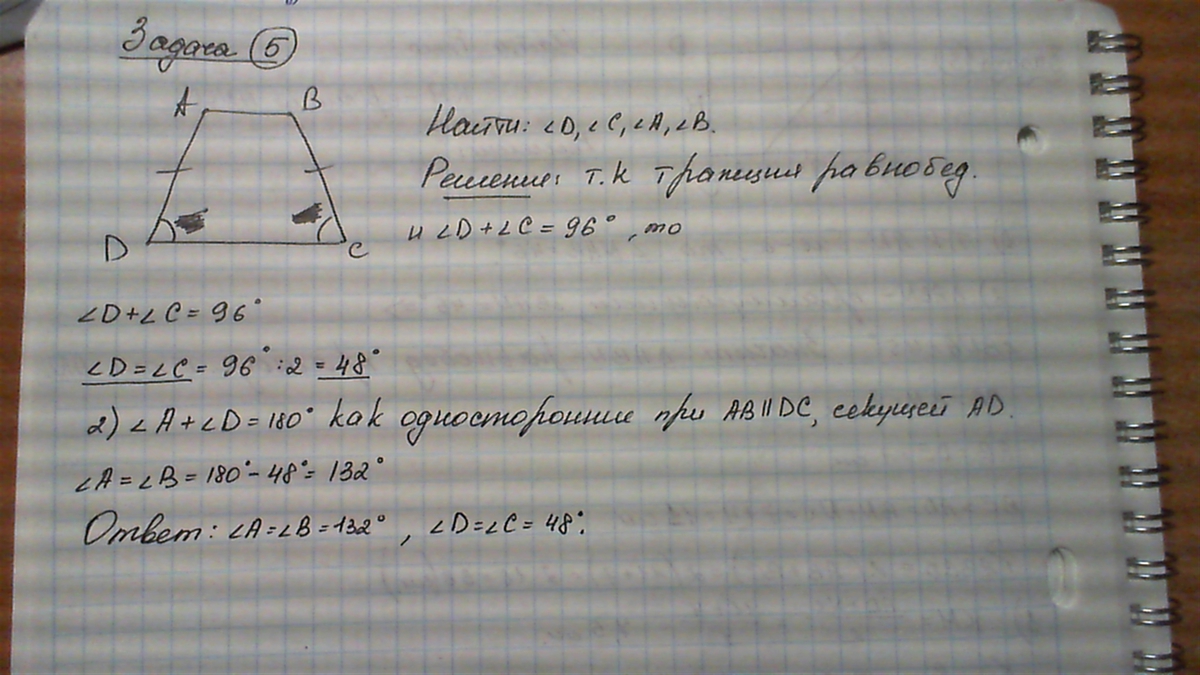 Задача 5
A B
D C
Найти: ∠D, ∠C, ∠A, ∠B.
Решение: т.к трапеция равнобед.
и ∠D+∠C = 96°, то
∠D+∠C = 96°
∠D=∠C = 96° : 2 = 48°
2) ∠A+∠D = 180° как односторонние при AB∥DC, секущей AD.
∠A=∠B = 180° - 48° = 132°
Ответ: ∠A=∠B = 132°, ∠D=∠C = 48°.